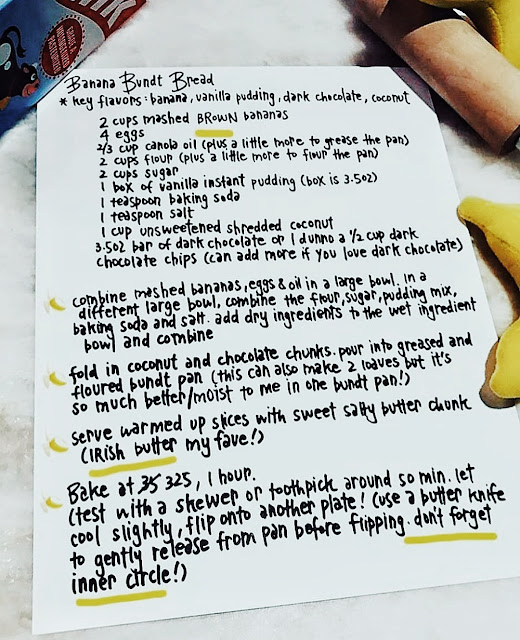 Banana Bundt Bread
* key flavors: banana, vanilla pudding, dark chocolate, coconut
2 cups mashed BROWN bananas
4 eggs
2/3 cup canola oil (plus a little more to grease the pan)
2 cups flour (plus a little more to flour the pan)
2 cups sugar
1 box of vanilla instant pudding (box is 3.5oz)
1 teaspoon baking soda
1 teaspoon salt
1 cup unsweetened shredded coconut
3.5oz bar of dark chocolate or I dunno a 1/2 cup dark
chocolate chips (can add more if you love dark chocolate)
combine mashed bananas, eggs & oil in a large bowl. In a
different large bowl, combine the flour, sugar, pudding mix,
baking soda and salt. add dry ingredients to the wet ingredient
bowl and combine
fold in coconut and chocolate chunks. pour into greased and
floured bundt pan (this can also make 2 loaves but it's
so much better/moist to me in one bundt pan!)
serve warmed up slices with sweet salty butter chunk
(IRish butter my fave!)
Bake at 325, 1 hour.
(test with a skewer or toothpick around 50 min. let
cool slightly, flip onto another plate! (use a butter knife
to gently release from pan before flipping. don't forget
inner circle!)